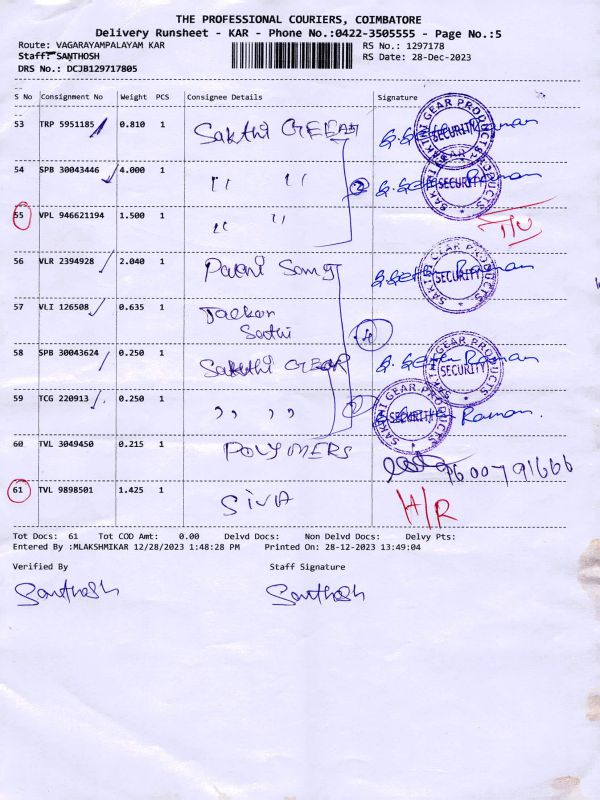 THE PROFESSIONAL COURIERS, COIMBATORE
Delivery Runsheet - KAR - Phone No.:0422-3505555 - Page No.:5
Route: VAGARAYAMPALAYAM KAR RS No.: 1297178
Staff: SANTHOSH RS Date: 28-Dec-2023
DRS No.: DCJB129717805
S No Consignment No Weight PCS Consignee Details Signature
53 TRP 5951185 0.810 1 Sakthi GEEAR
54 SPB 30043446 4.000 1 " "
55 VPL 946621194 1.500 1 " "
56 VLR 2394928 2.040 1
57 VLI 126508 0.635 1
58 SPB 30043624 0.250 1 Sakthi GEAR
59 TCG 220913 0.250 1 " "
60 TVL 3049450 0.215 1 POLYMERS 9600791666
61 TVL 9898501 1.425 1 SIVA H/R
SAKTHI GEAR PRODUCTS
SECURITY
SAKTHI GEAR PRODUCTS
SECURITY
SAKTHI GEAR PRODUCTS
SECURITY
SAKTHI GEAR PRODUCTS
SECURITY
SAKTHI GEAR PRODUCTS
SECURITY
Tot Docs: 61 Tot COD Amt: 0.00 Delvd Docs: Non Delvd Docs: Delvy Pts:
Entered By :MLAKSHMIKAR 12/28/2023 1:48:28 PM Printed On: 28-12-2023 13:49:04
Verified By Staff Signature
Santhosh Santhosh